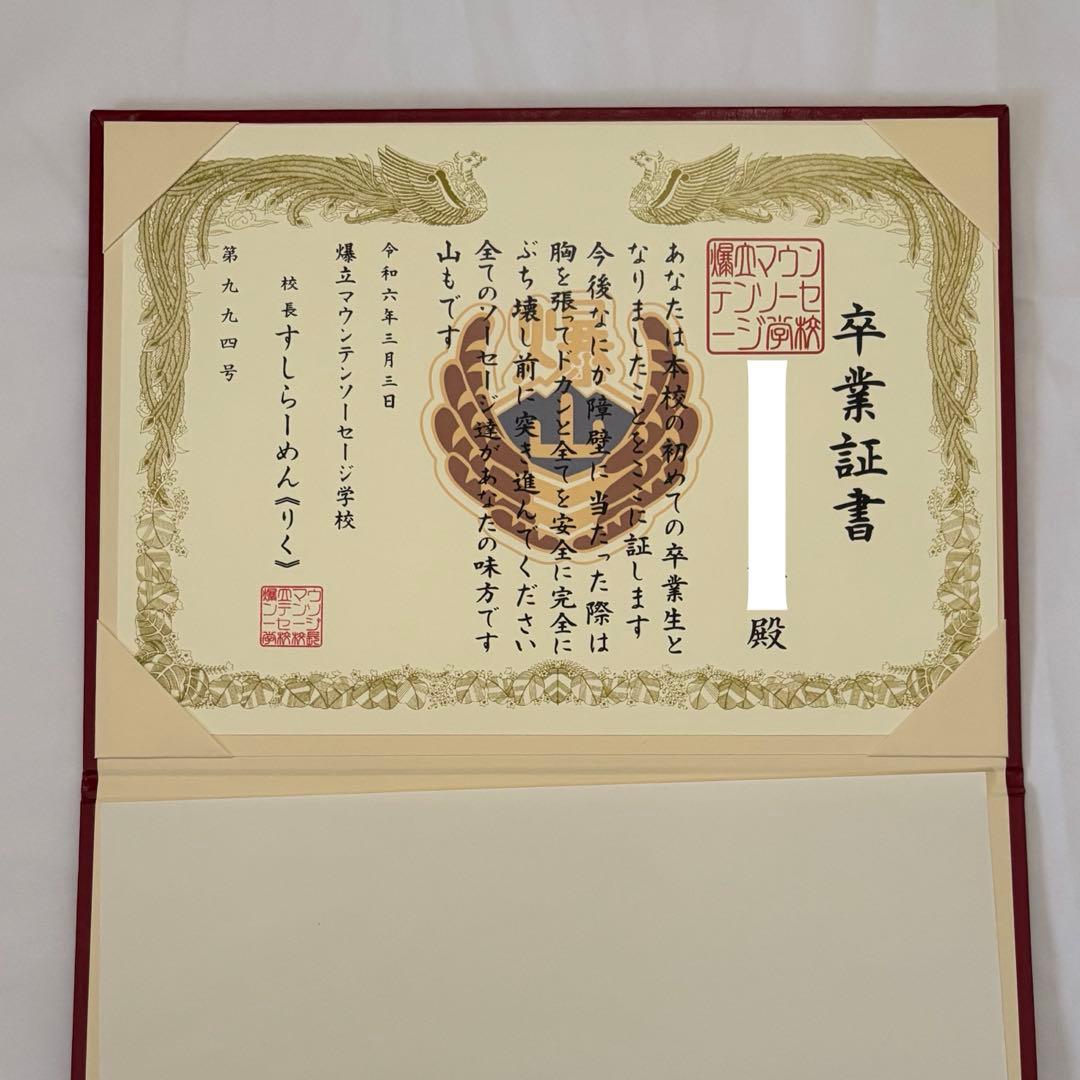 卒業証書
殿
爆立マウンテンソーセージ学校
あなたは本校の初めての卒業生と
なりましたことをここに証します
今後なにか障壁に当たった際は
胸を張ってドカンと全てを安全に完全に
ぶち壊し前に突き進んでください
全てのソーセージ達があなたの味方です
山もです
令和六年三月三日
爆立マウンテンソーセージ学校
校長すしらーめん《りく》
第九九四号
爆
山